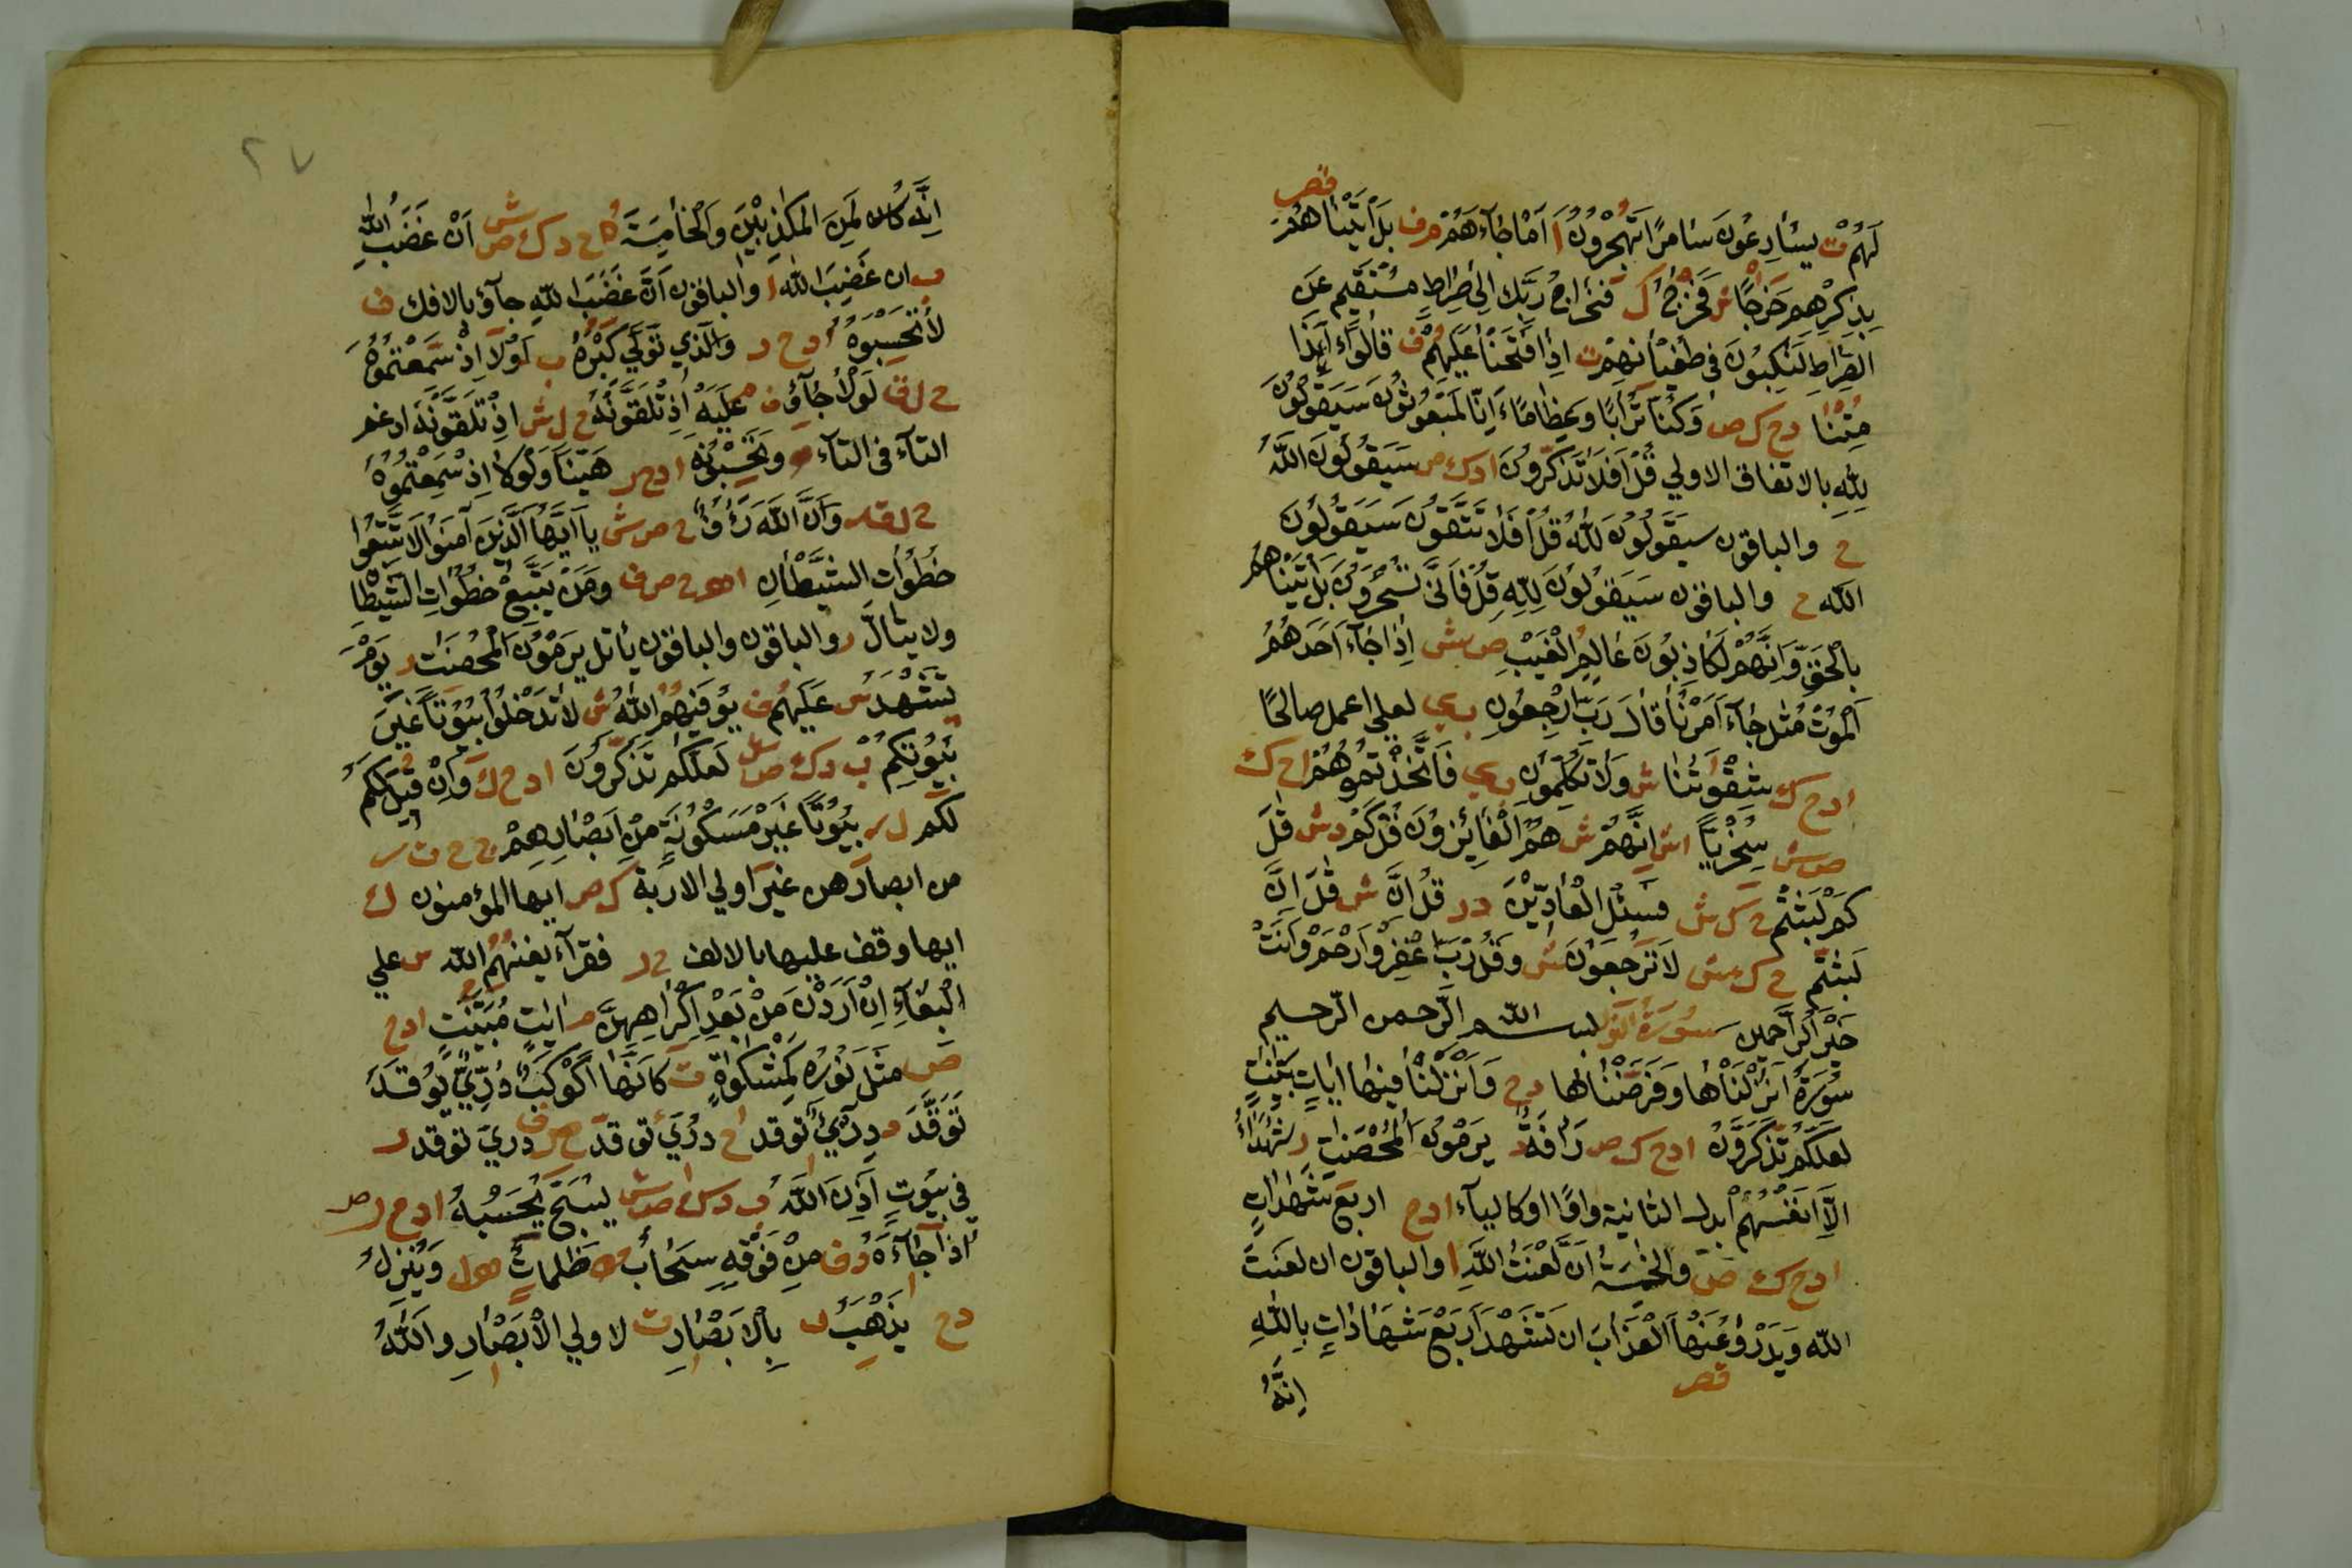 قص
لَهُم ت يسارِعُونَ سَامِرًا تَهْجُرُونَ ا اَمْ جَآءَهُمْ م ف بَلْ اَتَيْنَاهُمْ
بِذِكْرِهِمْ خَرْجًا ش فَخَرَاجُ ك فَخَرَاجُ رَبِّكَ اِلَى صِرَاطٍ مُسْتَقِيمٍ عَنِ
الصِّرَاطِ لَنَكِبُونَ فى طُغْيَانِهِمْ ت اِذَا فَتَحْنَا عَلَيْهِمْ ف قَالُوا ءَاِذَا
مِتْنَا دح ك ص وَكُنَّا تُرَابًا وَعِظَامًا ءَاِنَّا لَمَبْعُوثُونَ سَيَقُولُونَ
لِلّٰهِ بالاتفاق الاولي قُلْ اَفَلَا تَذَكَّرُونَ ا د ك ص سَيَقُولُونَ اللّٰهُ
ح والباقون سيَقُولُونَ لِلّٰهِ قُلْ اَفَلَا تَتَّقُونَ سَيَقُولُونَ
الله ح والباقون سَيَقُولُونَ لِلّٰهِ قُلْ فَاَنَّى تُسْحَرُونَ بَلْ اَتَيْنَاهُمْ
بِالْحَقِّ وَاِنَّهُمْ لَكَاذِبُونَ عَالِمِ الْغَيْبِ ص ش اِذَا جَآءَ اَحَدَهُمُ
الْمَوْتُ مثل جَآءَ اَمْرُنَا قَالَ رَبِّ ارْجِعُونِ لعلي اعمل صالحًا
ا د ح ك شِقْوَتُنَا ش وَلَا تُكَلِّمُونِ فَاتَّخَذْتُمُوهُمْ ا ح ك
ص ش سِخْرِيًّا ا ش اِنَّهُمْ ش هُمُ الْفَائِزُونَ قُلْ كَمْ د ش قٰلَ
كَمْ لَبِثْتُمْ ح ك ش فَسْئَلِ الْعَادِّيْنَ د ر قُلْ اِنْ ش قٰلَ اِنْ
لَبِثْتُم ح ك ش لَا تُرْجَعُونَ ش وَقُلْ رَبِّ اغْفِرْ وَارْحَمْ وَاَنْتَ
خَيْرُ الرَّاحِمِينَ سُورَةُ النور بسم الله الرّحمن الرّحيم
سُورَةٌ اَنْزَلْنَاهَا وَفَرَضْنَاهَا د ح وَاَنْزَلْنَا فِيهَا ايَاتٍ بَيِّنَاتٍ
لَعَلَّكُمْ تَذَكَّرُونَ ا د ح ك ص رَاْفَةٌ د يَرْمُونَ الْمُحْصَنٰتِ ر شُهَدَاءُ
اِلَّا اَنْفُسُهُمْ ابدل الثانية واوًا او كالياء ا د ح اربع شَهَادَاتٍ
ا د ح ك ص والخمسة اَنْ لَعْنَتُ اللّٰهِ ا والباقون ان لعنت
الله وَيَدْرَؤُ عَنْهَا الْعَذَابَ ان تَشْهَدَ اَرْبَعَ شَهَادَاتٍ بِاللّٰهِ
قص
اِنَّهُ
٢٧
اِنَّهُ كان لَمِنَ الْمكَذِبِيْنَ وَالْخَامِسَةُ ا ح د ك ص ش اَنْ غَضَبُ اللّٰهِ
ب ان غَضِبَ اللّٰهُ ا والباقون اَنَّ غَضَبَ اللّٰهِ جآؤ بالافك ف
لَا تَحْسَبُوهُ ا د ح ر وَالَّذِي تَوَلَّى كِبْرَهُ ب لَوْلَا اِذْ سَّمِعْتُمُوهُ
ح ل ق لَوْلَا جَآؤُ ف م عَلَيْهِ اِذْ تَلَقَّوْنَهُ ح ل ش اِذْ تَلَقَّوْنَهُ ادغم
التآء فى التآء وَتَحْسَبُونَهُ ا د ح ر هَيِّنًا وَلَوْلَا اِذْ سَمِعْتُمُوهُ
ح ل ق ر وَاَنَّ اللّٰهَ رَؤُفٌ ح ص ش يا اَيُّهَا الَّذِينَ آمَنُوا لَا تَتَّبِعُوا
خُطُوَاتِ الشَّيْطَانِ ا هـ ح ص ف وَمَنْ يَتَّبِعْ خُطُوَاتِ الشَّيْطَا
ولا يتألَّ ر والباقون والباقون يأتل يَرْمُونَ الْمُحْصَنٰتِ ر يَوْمَ
تَشْهَدُ ش عَلَيْهِمْ ف يُوَفِّيهِمُ اللّٰهُ ش لَا تَدْخُلُوا بُيُوتًا غَيْرَ
بُيُوتِكُمْ ب د ك ص ش لَعَلَّكُمْ تَذَكَّرُونَ ا د ح ك وَاِنْ قِيلَ لَكُمْ
لكم ل ر بُيُوتًا غَيْرَ مَسْكُونَةٍ مِنْ اَبْصَارِهِمْ ح ح ت ر
من ابصارهن غير اولي الاربة ك ص ايها المؤمنون ك
ايها وقف عليها بالالف ح ر فقرآء يغنهم الله س علي
الْبِغَآءِ اِنْ اَرَدْنَ مِنْ بَعْدِ اِكْرَاهِهِنَّ م ايٰتٍ مُبَيَّنٰتٍ ا د ح
ص مَثَلُ نُوْرِهِ كَمِشْكٰوةٍ ت كَاَنَّهَا كَوْكَبٌ دُرِّيٌّ يُوْقَدُ
تَوَقَّدَ د دِرِّيْءٌ تَوَقَدَ ا ح دُرِّيءٌ توقد ص ف دري توقد ر
فى بُيُوتٍ اَذِنَ اللّٰهُ ب د ك ا ص ش يُسَبَّحُ يَحْسَبُهُ ا د ح ر ص
اِذَا جَآءَهُ د ف مِنْ فَوْقِهِ سَحَابٌ ظلمات هـ ل وَيُنْزِلُ
د ح يَذْهَبُ ر بِالْاَبْصَارِ ت لاولي الْاَبْصَارِ واللّٰهُ